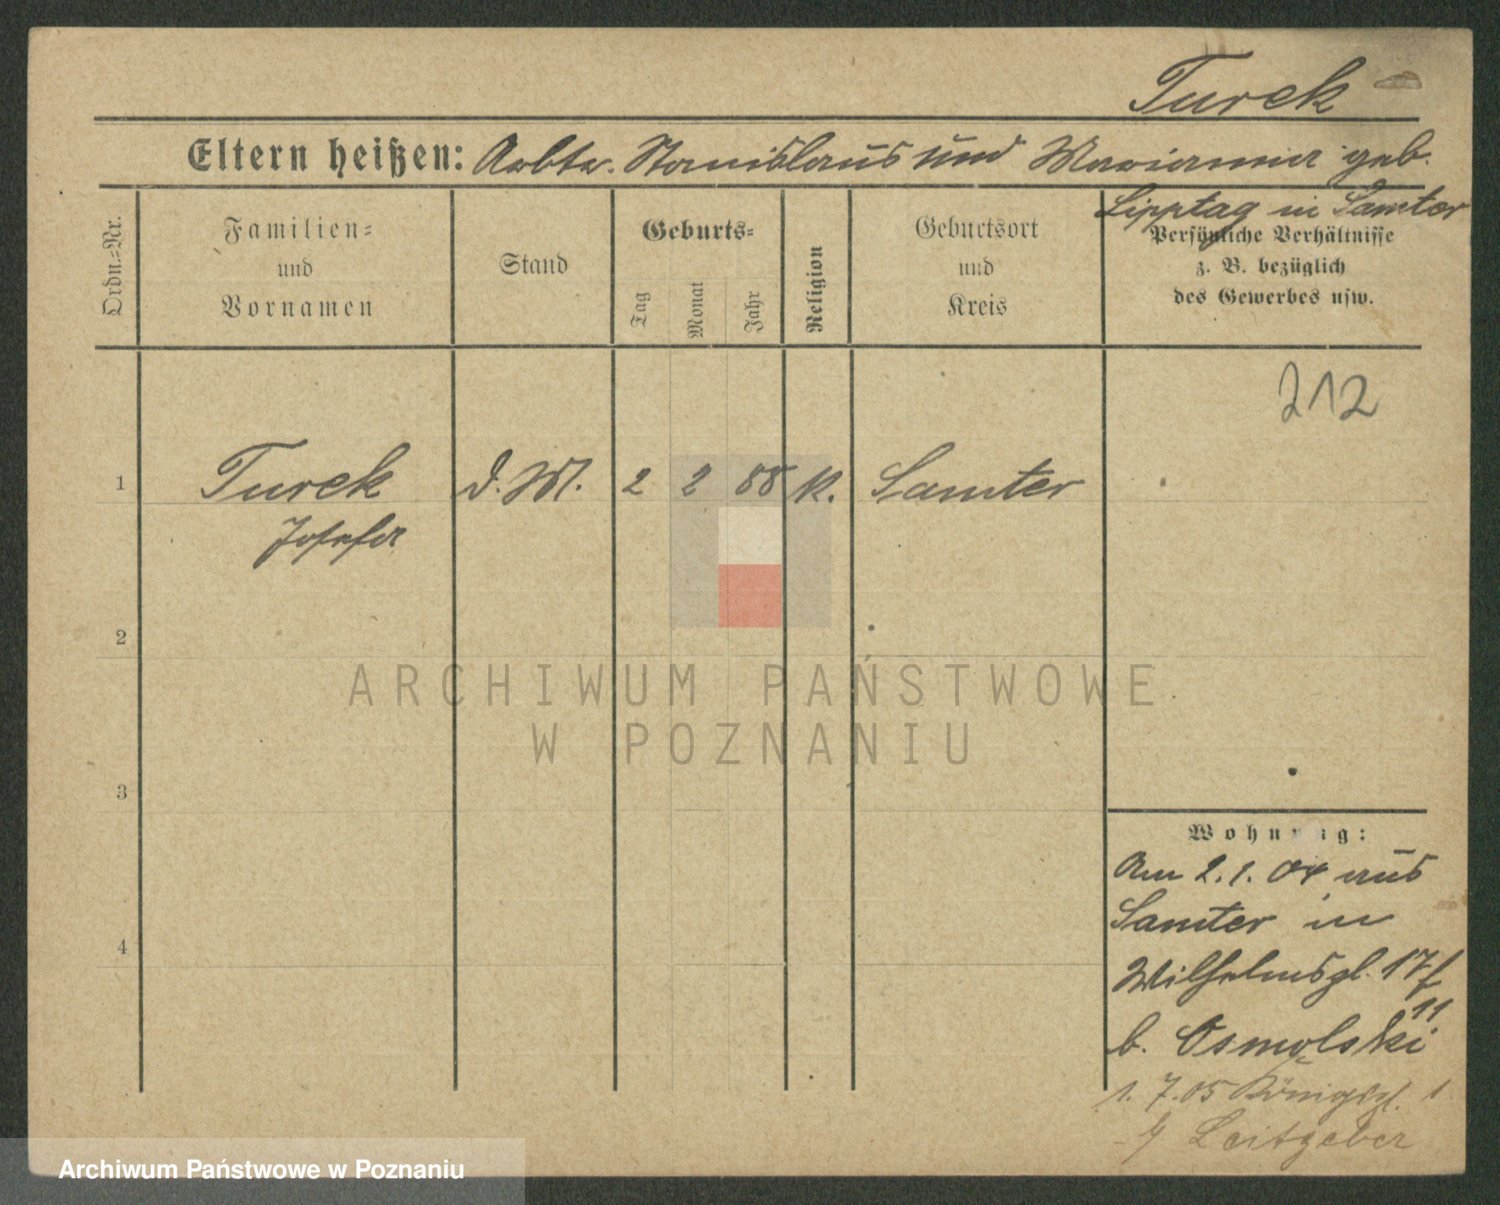 Turek
Eltern heißen: Arbtr. Stanislaus und Marianna geb.
Lipptag in Samter
Ordn.-Nr.
Familien-
und
Vornamen
Stand
Geburts-
Tag
Monat
Jahr
Religion
Geburtsort
und
Kreis
Persönliche Verhältnisse
z. B. bezüglich
des Gewerbes usw.
212
1 Turek d. M. 2 2 88 k. Samter
Josefa
2
ARCHIWUM PAŃSTWOWE
W POZNANIU
3
Wohnung:
Am 2.1.04 aus
Samter in
4
Wilhelmspl. 17f
11
b. Osmolski
1. 7.05 Königspl. 1
Leitgeber
Archiwum Państwowe w Poznaniu